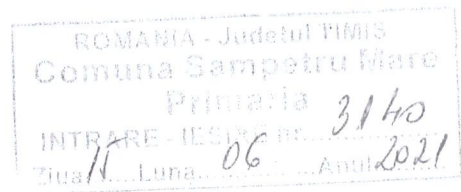 ROMANIA - Judetul TIMIS
Comuna Sampetru Mare
Primaria
INTRARE - IESIRE nr. 3140
Ziua 11 Luna 06 Anul 2021